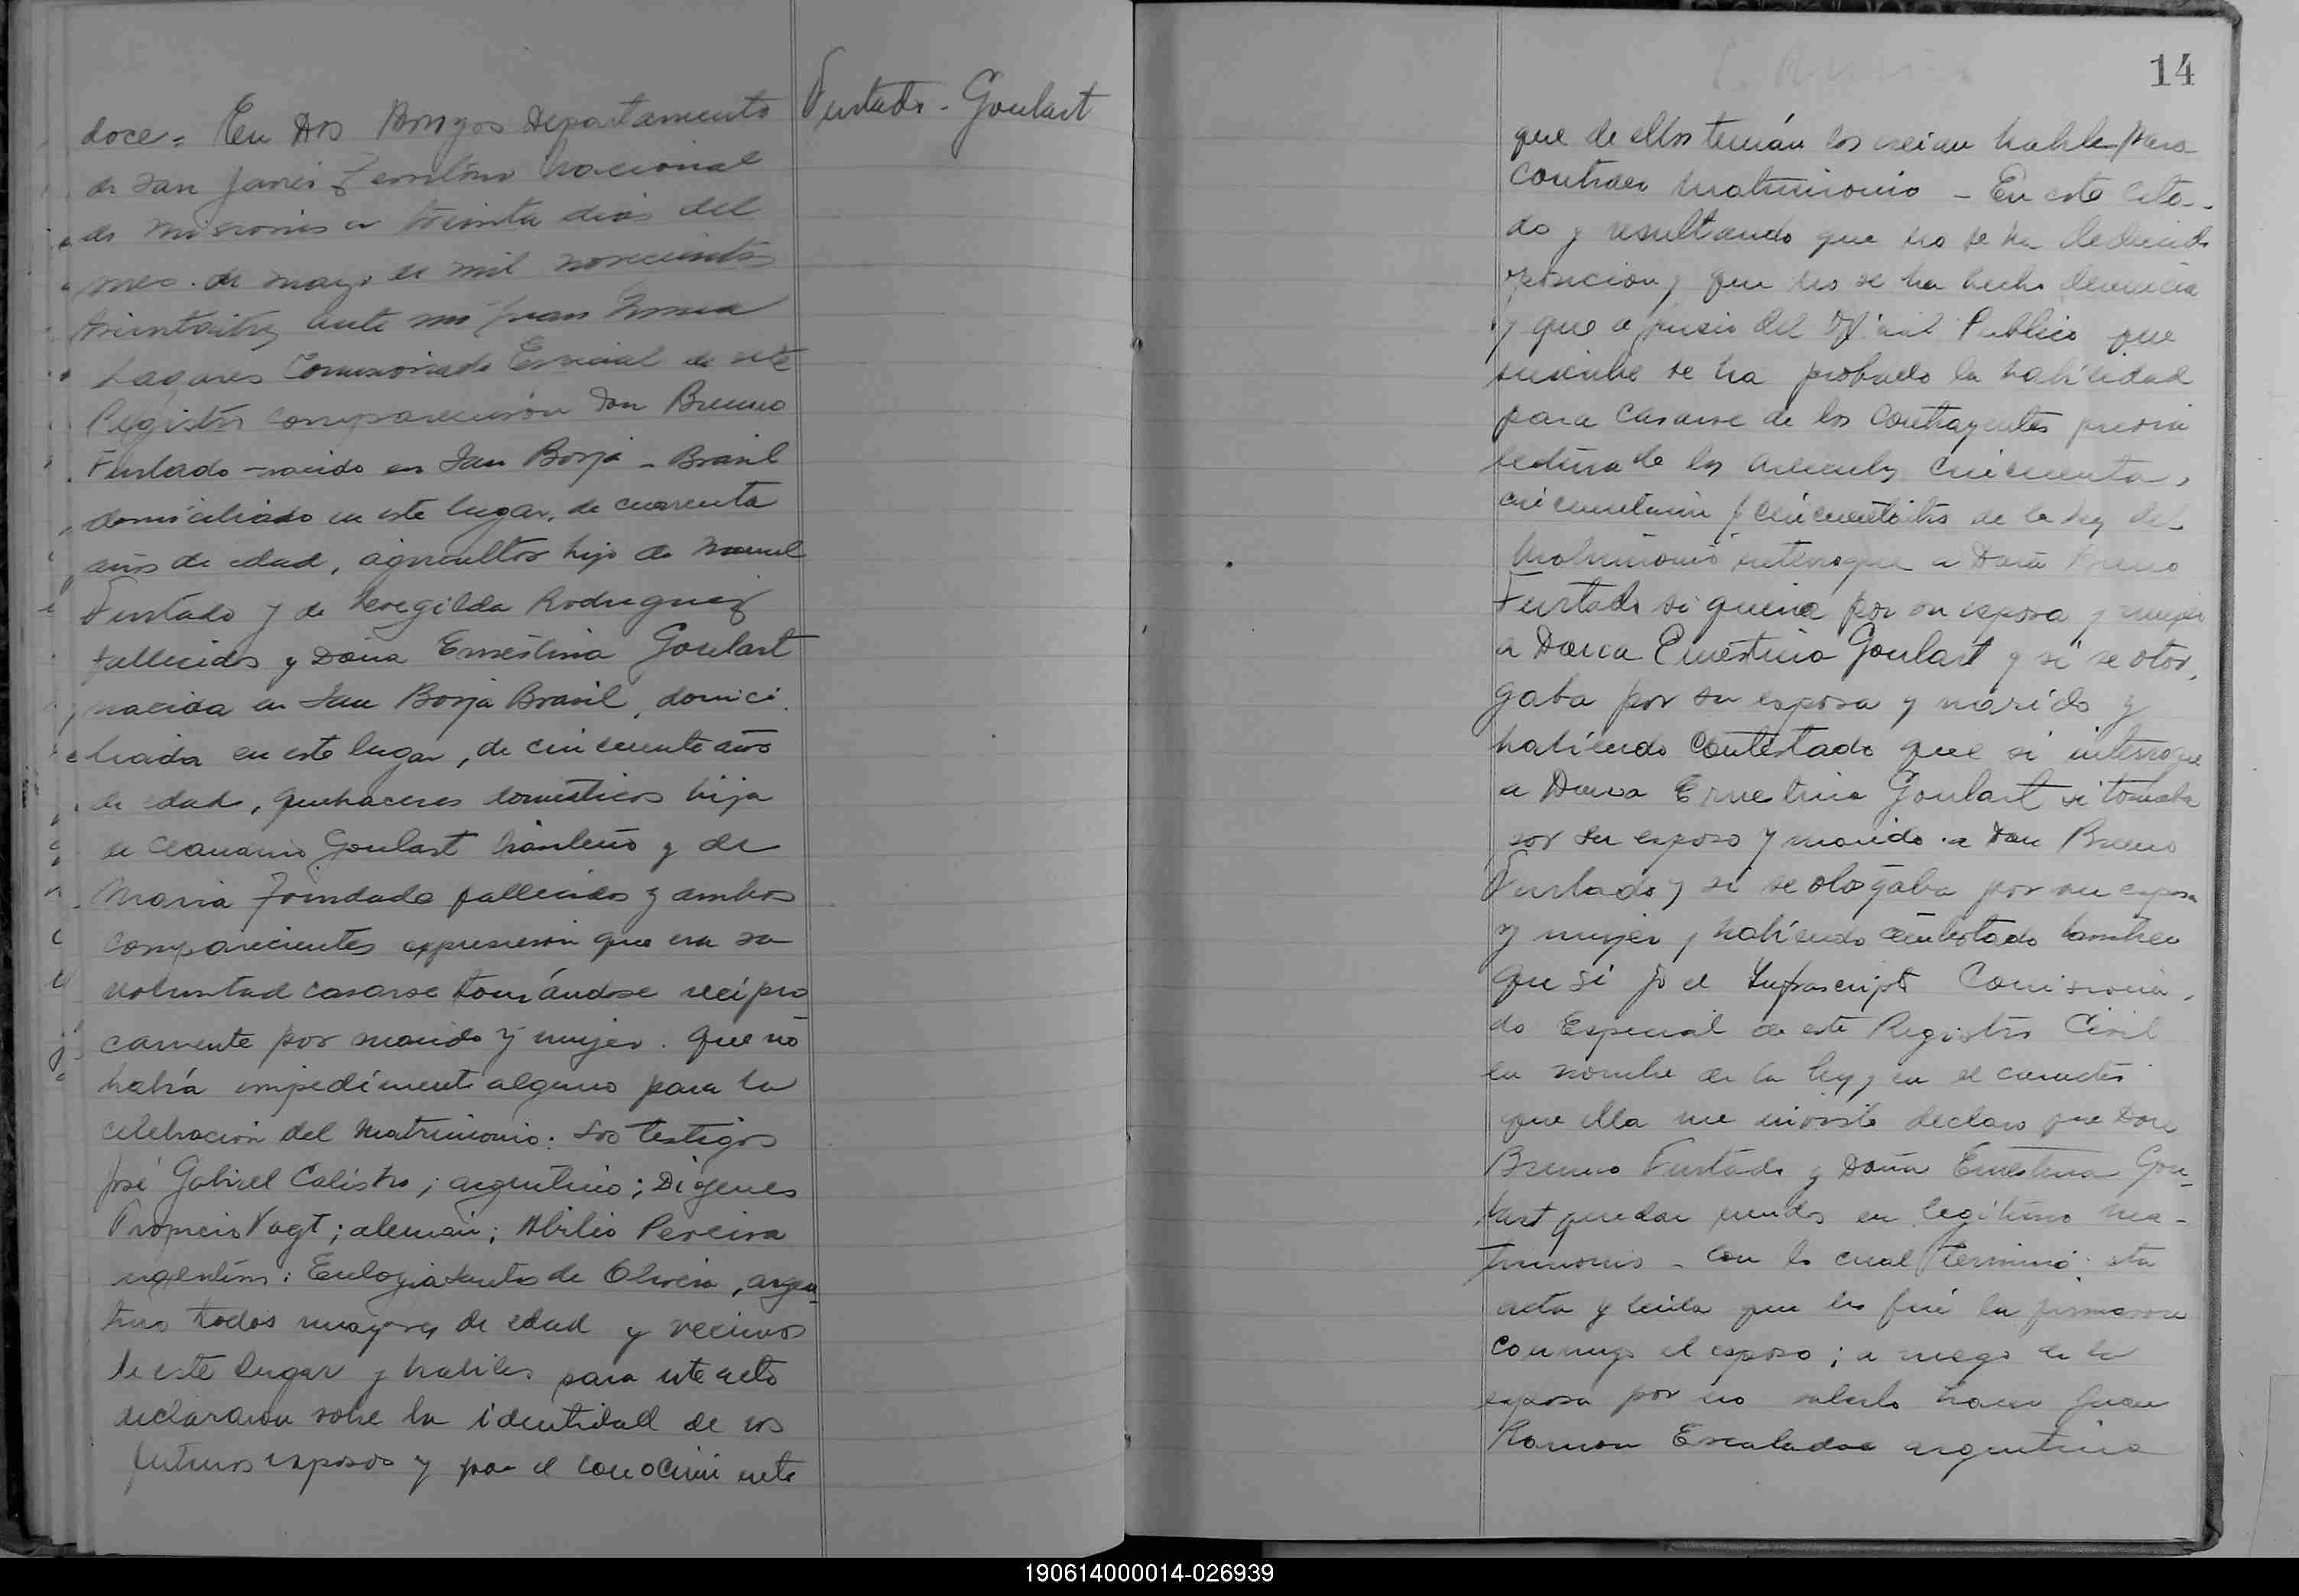 Furtado - Goulart
doce = En Dos Arroyos Departamento
de San Javier Territorio Nacional
de Misiones a treinta dias del
mes de mayo de mil novecientos
treintaitres ante mi Juan
Lagares Comisionado Especial de este
Registro comparecieron Don Brenno
Furtado nacido en San Borja - Brasil
domiciliado en este lugar, de cuarenta
años de edad, agricultor hijo de Manuel
Furtado y de Heregilda Rodriguez
fallecidos y Doña Ernestina Goulart
nacida en San Borja Brasil, domici
liada en este lugar, de cincuenta años
de edad, quehaceres domesticos hija
de Goulart brasileño y de
Maria Trindade fallecidos y ambos
comparecientes expresaron que era su
voluntad casarse tomándose recipro
camente por marido y mujer. Que no
había impedimento alguno para la
celebracion del Matrimonio. Los testigos
José Gabriel Calistro, argentino; Diogenes
Vogt; aleman; Abilio Pereira
argentino; Eulogia de Oliveira, argen
tino todos mayores de edad y vecinos
de este lugar y habiles para este acto
declararon sobre la identidad de los
futuros esposos y por el conocimiento
14
que de ellos tenían los creian habiles para
contraer matrimonio - En este esta-
do y resultando que no se ha deducido
oposicion y que no se ha hecho denuncia
y que a juicio del Oficial Publico que
suscribe se ha probado la habilidad
para casarse de los contrayentes previa
lectura de los articulos cincuenta,
cincuentaiun y cincuentaitres de la Ley del
Matrimonio interrogue a Don Brenno
Furtado si queria por su esposa y mujer
a Dona Ernestina Goulart y si se otor
gaba por su esposo y marido y
habiendo contestado que si interrogue
a Dona Ernestina Goulart si tomaba
por su esposo y marido a Don Brenno
Furtado y si se otorgaba por su esposa
y mujer y habiendo contestado tambien
que si yo el Infrascripto Comisiona
do Especial de este Registro Civil
en nombre de la ley y en el caracter
que ella me inviste declaro que Don
Brenno Furtado y Doña Ernestina Gou-
lart quedan unidos en legitimo ma-
trimonio - con lo cual termino esta
acta y leida que les fué la firmaron
conmigo el esposo; a ruego de la
esposa por no saberlo hacer Juan
Ramon Escalada argentino
190614000014-026939